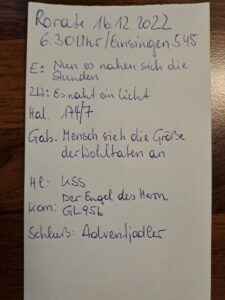 Rorate 16.12.2022
6.30 Uhr/Einsingen 5.45
E: Nun es nahen sich die
Stunden
ZW: Es naht ein Licht
Hal. 174/7
Gab. Mensch sieh die Größe
der Wohltaten an
Hl: KSS
Kom: Der Engel des Herrn
GL 956
Schluß: Adventjodler